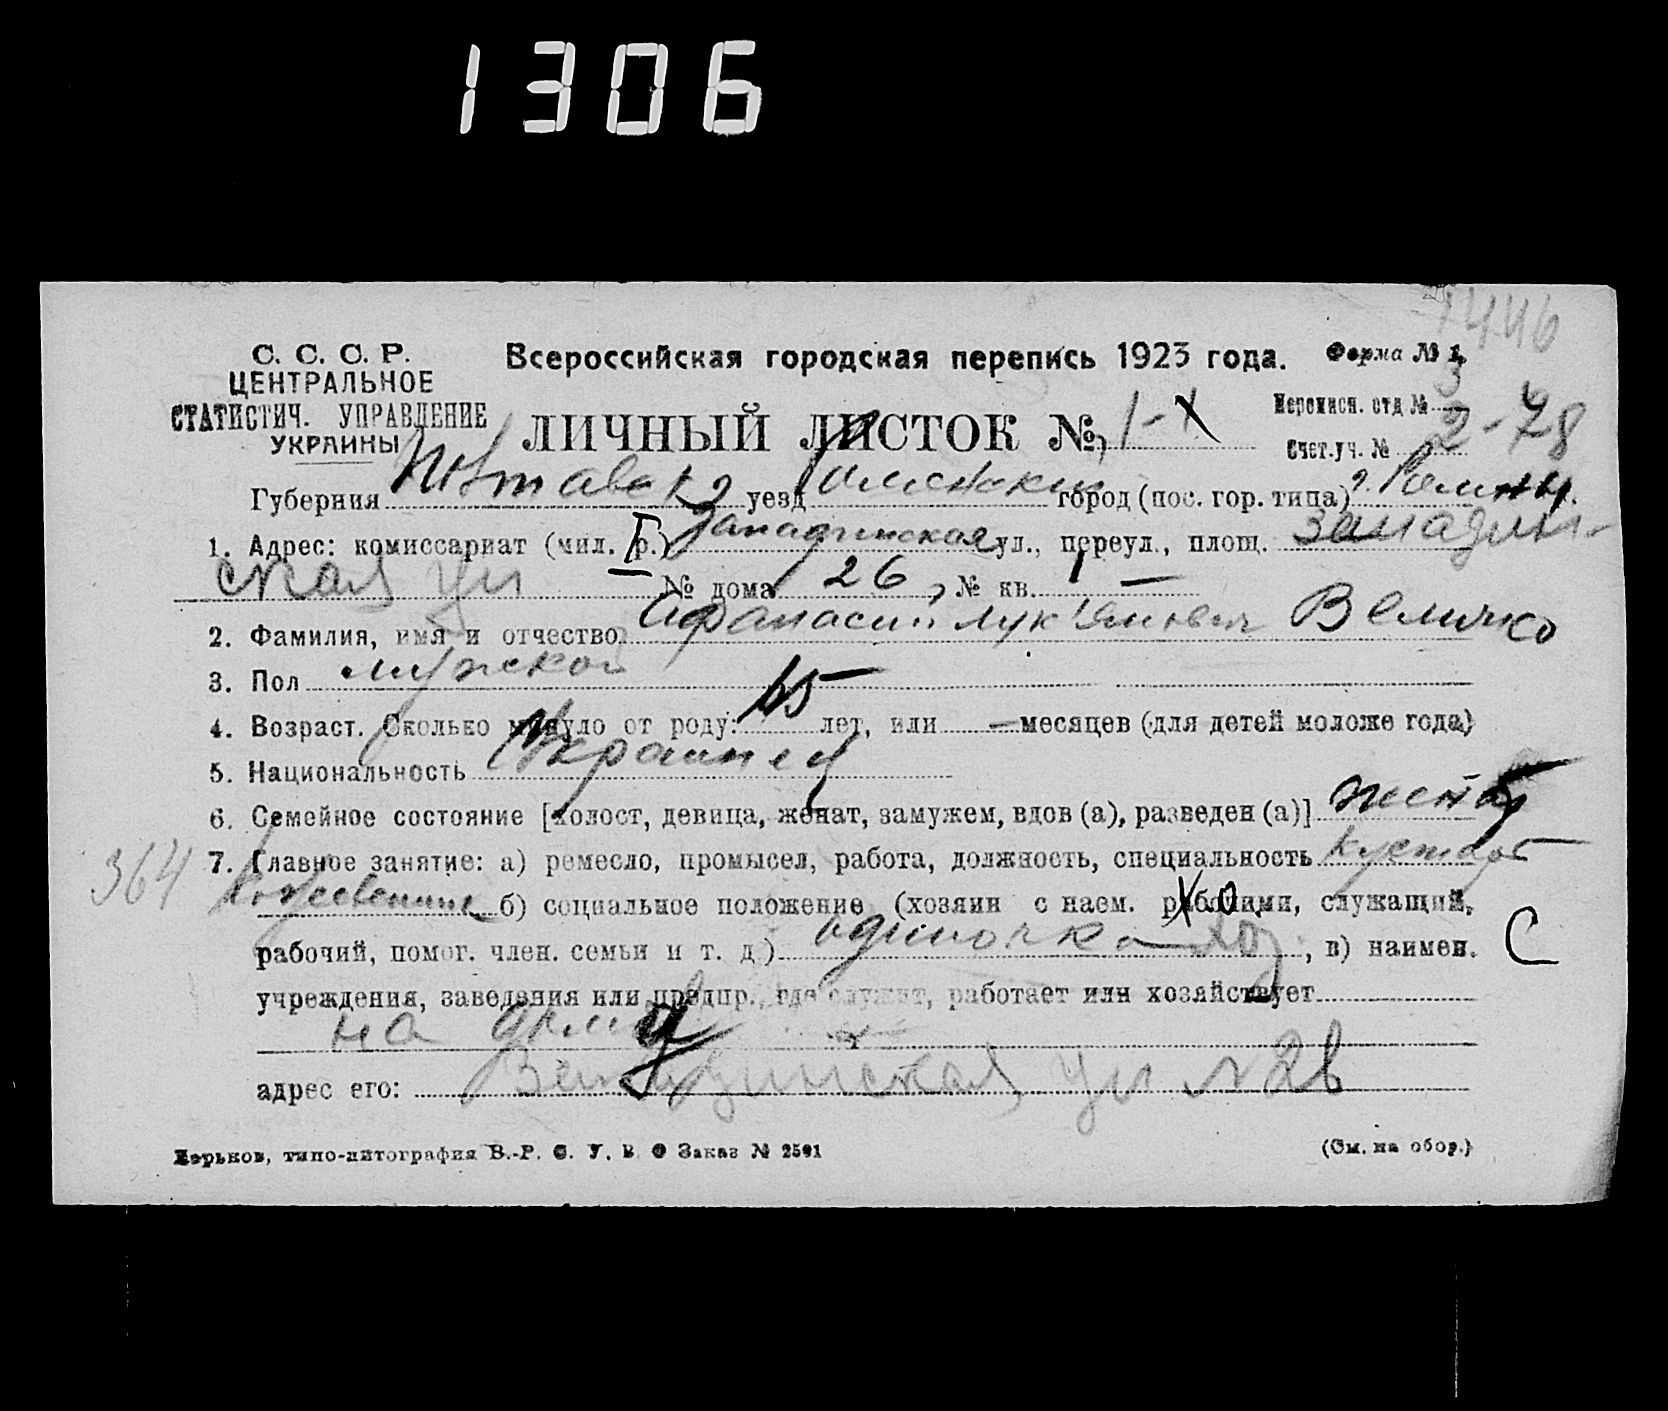 1306
1446
С. С. С. Р.
ЦЕНТРАЛЬНОЕ
СТАТИСТИЧ. УПРАВЛЕНИЕ
УКРАИНЫ
Всероссийская городская перепись 1923 года. Форма № 1.
ЛИЧНЫЙ ЛИСТОК № 1-
Переписн. отд № 3
Счет.уч. № 2-78
Губерния Полтавск уезд Роменский город (пос. гор. типа) г. Ромны.
1. Адрес: комиссариат (мил. р.) I Западинская ул., переул., площ. западин-
ская ул № дома 26, № кв. 1 —
2. Фамилия, имя и отчество Афанасий Лук'янович Величко
3. Пол мужской
4. Возраст. Сколько минуло от роду: 65 лет, или — месяцев (для детей моложе года)
5. Национальность Украинец
6. Семейное состояние [холост, девица, женат, замужем, вдов (а), разведен (а)] женат
364
7. Главное занятие: а) ремесло, промысел, работа, должность, специальность кустарь
б) социальное положение (хозяин с наем. рабочими, служащий,
рабочий, помог. член. семьи и т. д) одиночка , в) наимен. С
учреждения, заведения или предпр., где служит, работает или хозяйствует
на дому
адрес его: Западинская ул № 26
Харьков, типо-литография В.-Р. С. У. В. О Заказ № 2591
(См. на обор.)